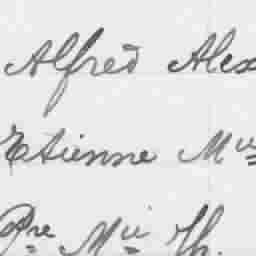 Alfred Alex
Etienne Mie
Pre Mie Th.